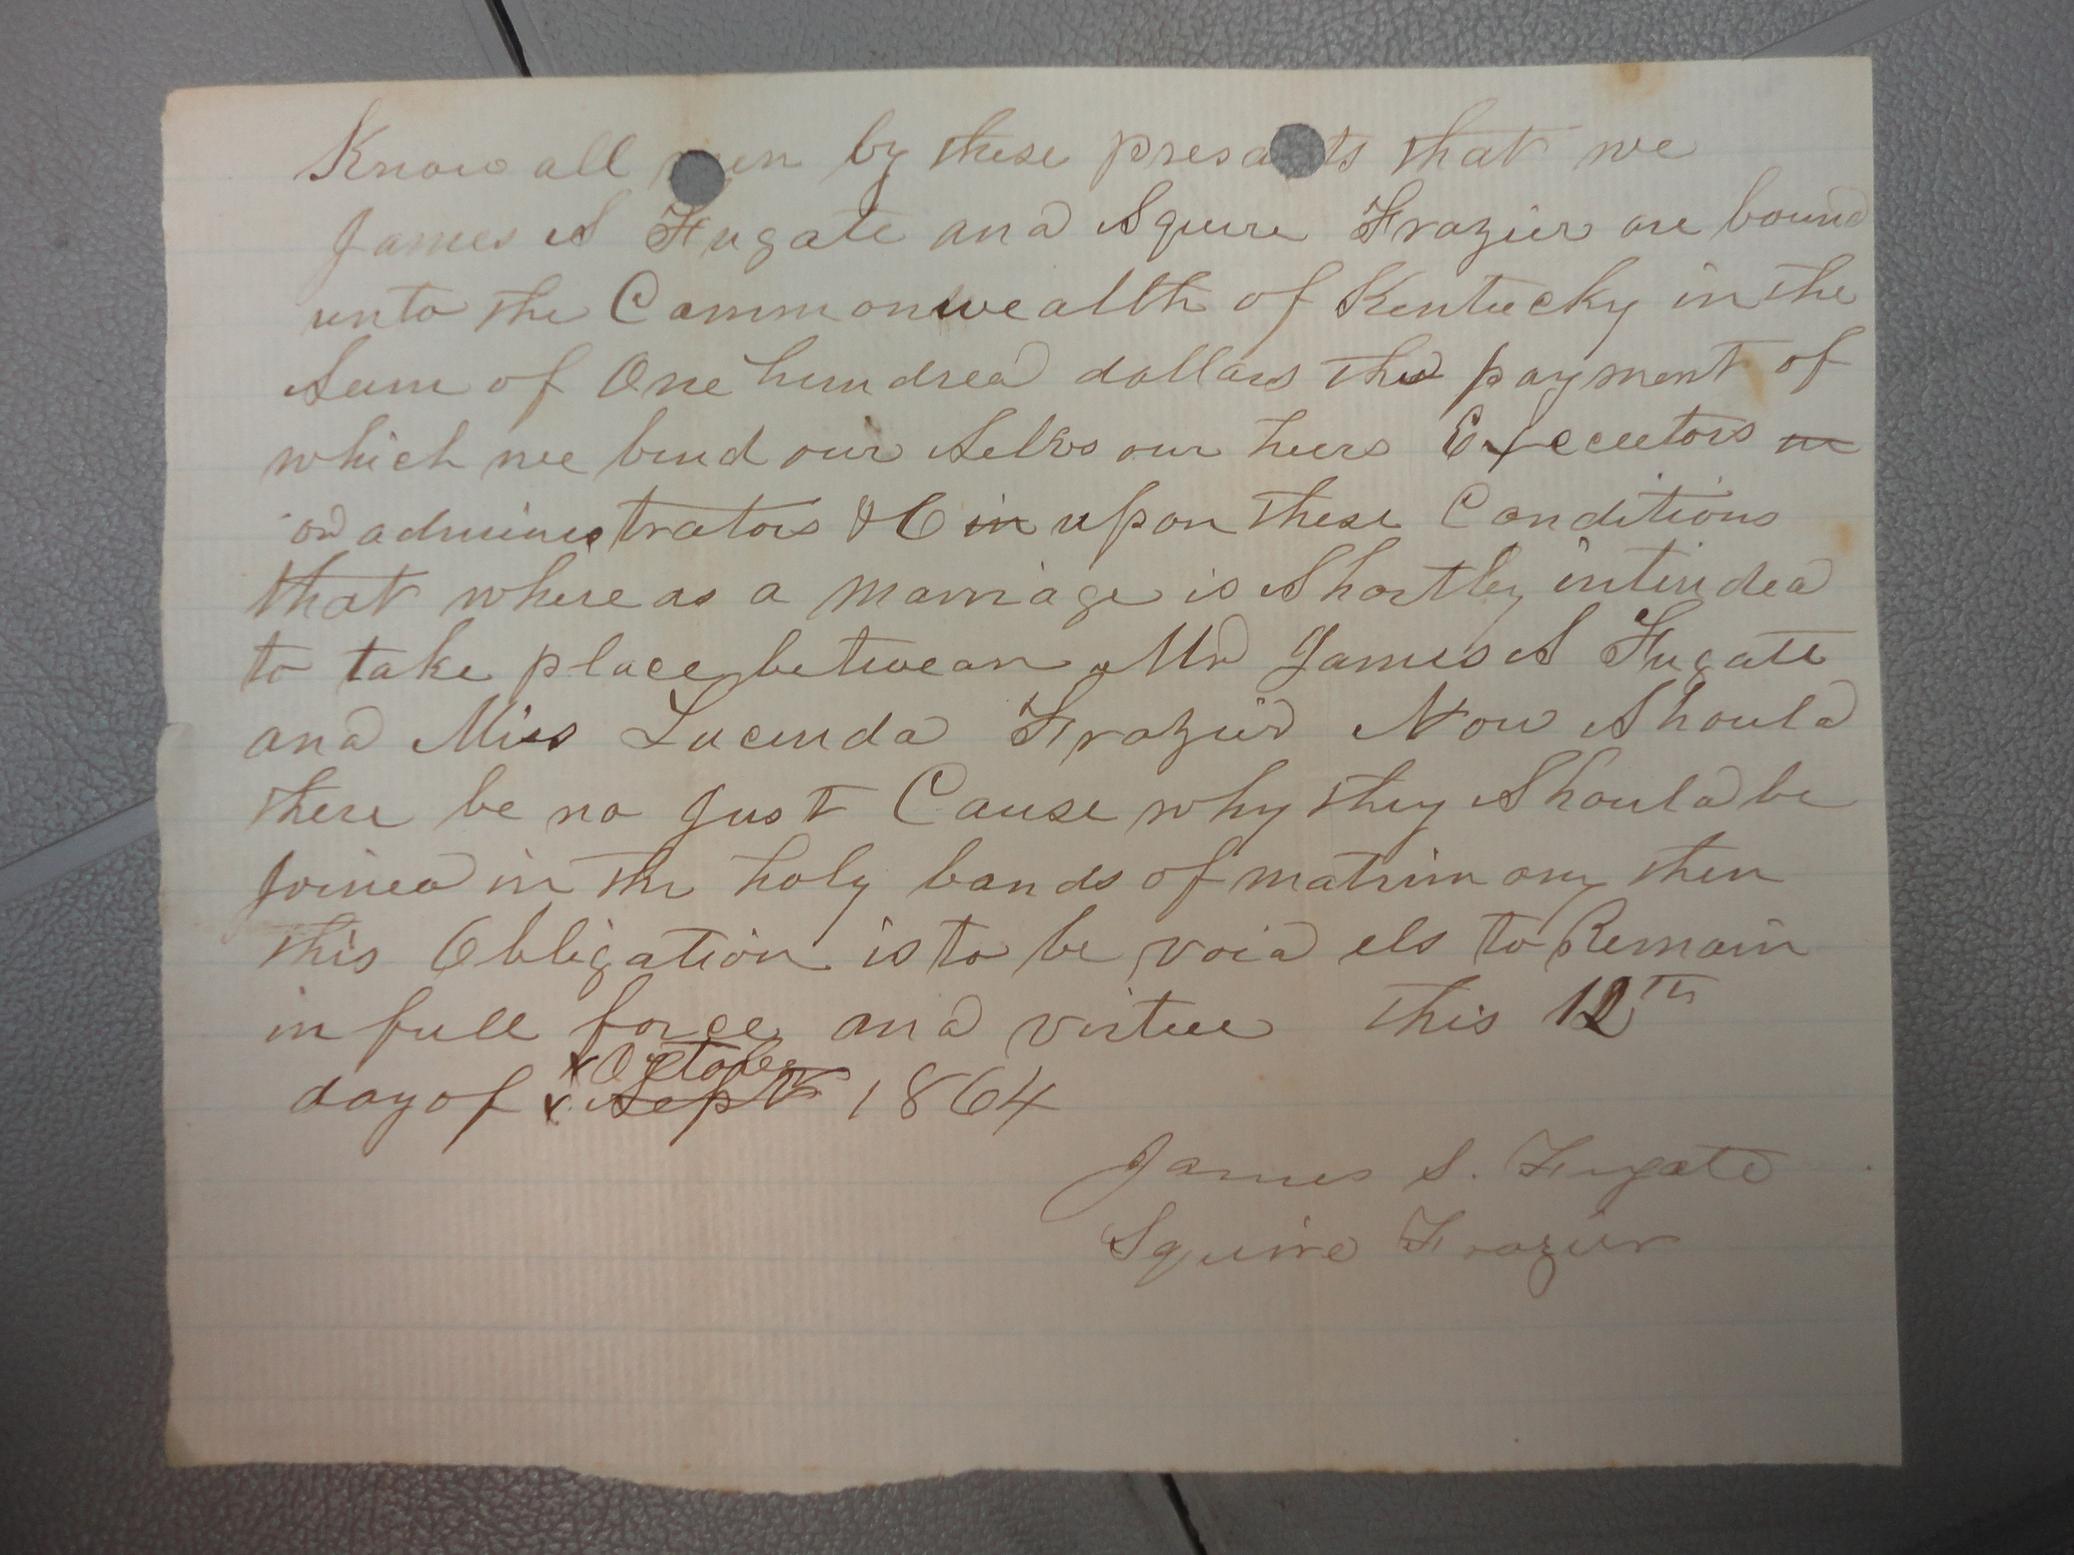 Know all men by these presants that we
James S Fugate and Squire Frazier are bound
unto the Commonwealth of Kentucky in the
Sum of One hundred dollars the payment of
which we bind our Selvs our heirs Executors or
or administrators &C in upon these Conditions
that where as a marriage is Shortley intended
to take place between Mr James S Fugate
and Miss Lucinda Frazier Now Should
there be no Just Cause why they Should be
Joined in the holy bands of matrimony then
this Obligation is to be void els to Remain
in full force and virtue this 12th
October
day of Sept 1864
James S. Fugate
Squire Frazier